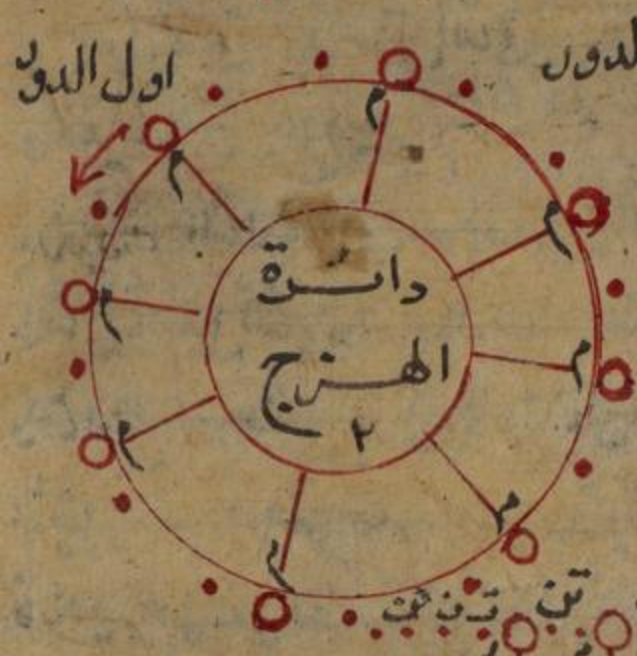 اول الدور
لدور
دائرة
الهزج
٢
م
م
م
م
م
م
م
م
تن